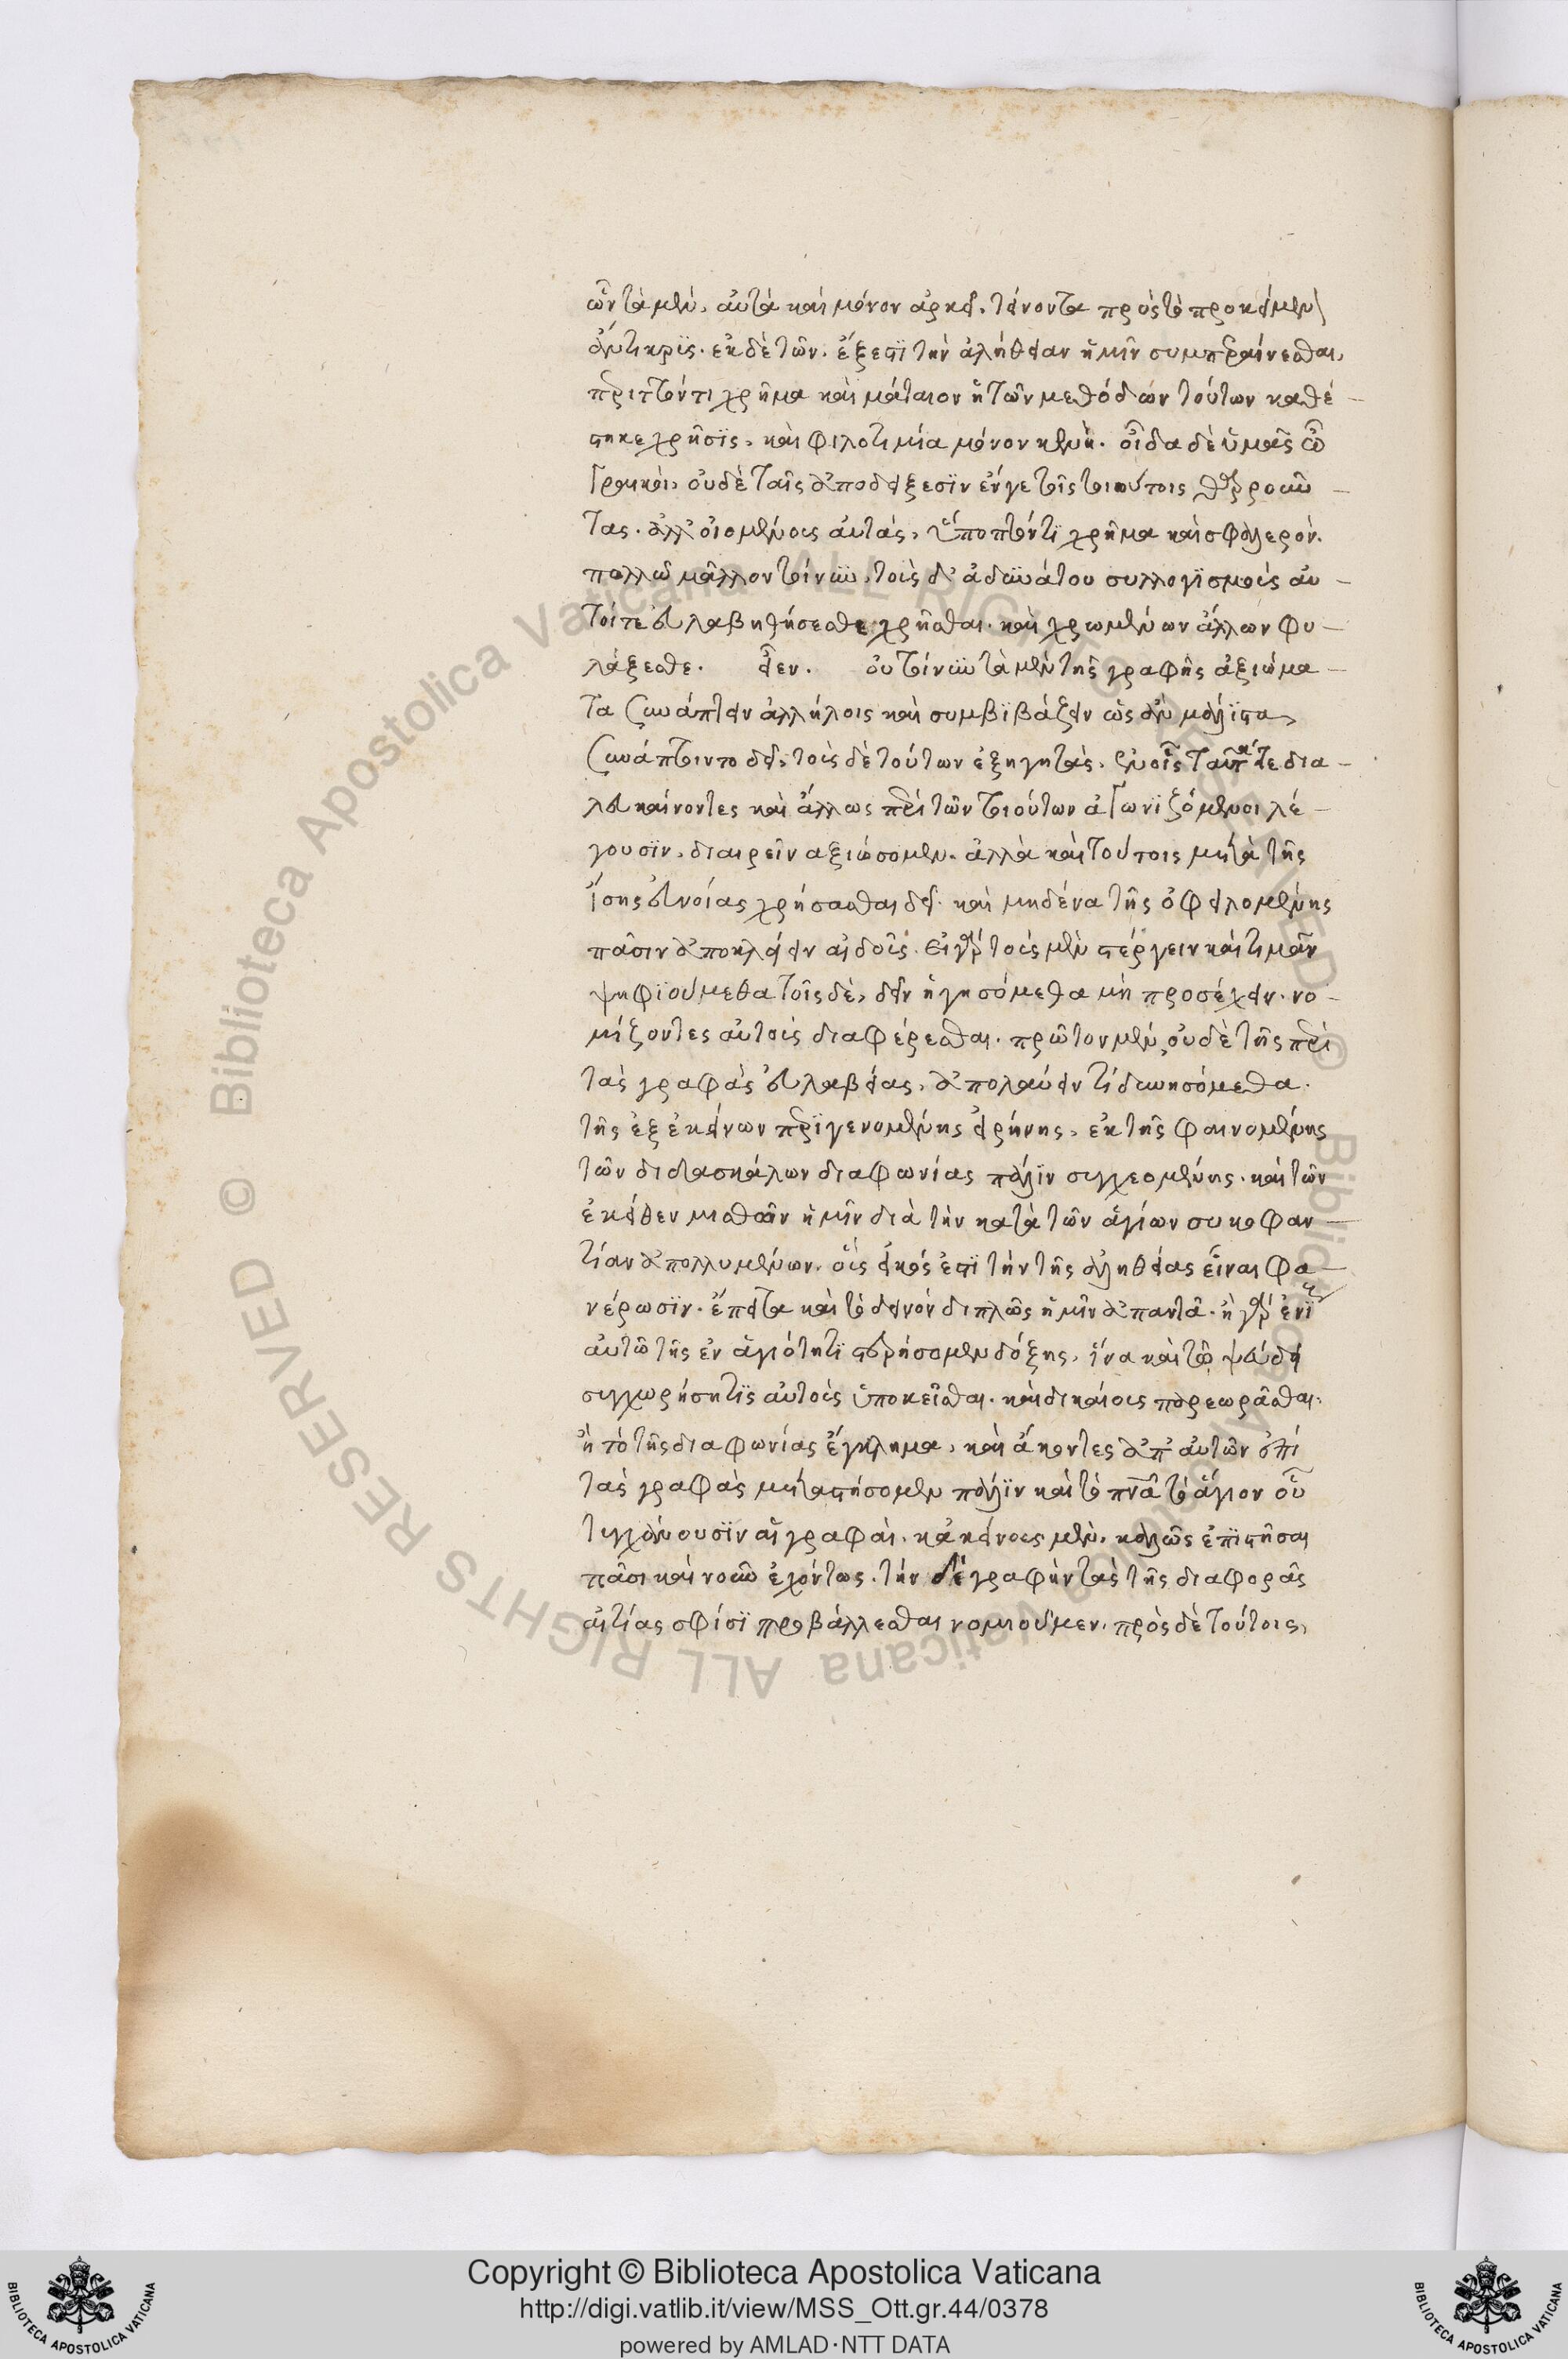 ὧν τὰ μὲν, αὐτὰ καὶ μόνον ἀρκεῖ. τείνοντα πρὸς τὸ προκείμενον
ἄντικρϊς. ἐκ δὲ τῶν. ἔξεστϊ τὴν ἀλήθειαν ἡμῖν συμπεραίνεσθαι,
περιττόν τι χρῆμα καὶ μάταιον ἡ τῶν μεθόδων τούτων καθέ-
στηκε χρῆσϊς, καὶ φιλοτιμία μόνον κενή. οἶδα δὲ ὑμᾶς ὦ
Γραικοὶ, οὐδὲ ταῖς ἀποδείξεσϊν ἔν γε τοῖς τοιούτοις θαρροῦν-
τας. ἀλλ' οἰομένους αὐτὰς, ὕποπτόν τϊ χρῆμα καὶ σφαλερόν.
πολλῶ μᾶλλον τοίνυν, τοῖς δι' ἀδυνάτου συλλογϊσμοῖς αὐ-
τοί τε εὐλαβηθήσεσθε χρῆσθαι. καὶ χρωμένων ἄλλων φυ-
λάξεσθε. εἶεν. οὐ τοίνυν τὰ μὲν τῆς γραφῆς ἀξιώμα-
τα συνάπτειν ἀλλήλοις καὶ συμβϊβάζειν ὡς ἂν μάλϊστα
συνάπτοιντο δεῖ, τοὺς δὲ τούτων ἐξηγητὰς, ἐν οἷς τε δια-
λευκαίνοντες καὶ ἄλλως περὶ τῶν τοιούτων ἀγωνϊζόμενοι λέ-
γουσϊν, διαιρεῖν ἀξιώσομεν. ἀλλὰ καὶ τούτοις μετὰ τῆς
ἴσης εὐνοίας χρήσασθαι δεῖ. καὶ μηδένα τῆς ὀφειλομένης
πᾶσιν ἀποκλείειν αἰδοῦς. εἰ γὰρ τοὺς μὲν στέργειν καὶ τιμᾶν
ψηφϊούμεθα τοῖς δὲ, δεῖν ἡγησόμεθα μὴ προσέχειν. νο-
μίζοντες αὐτοὺς διαφέρεσθαι. πρῶτον μὲν, οὐδὲ τῆς περὶ
τὰς γραφὰς εὐλαβείας, ἀπολαύειν τι δυνησόμεθα.
τῆς ἐξ ἐκείνων περϊγενομένης εἰρήνης, ἐκ τῆς φαινομένης
τῶν διδασκάλων διαφωνίας πάλϊν συγχεομένης. καὶ τῶν
ἐκεῖθεν μισθῶν ἡμῖν διὰ τὴν κατὰ τῶν ἁγίων συκοφαν-
τίαν ἀπολλυμένων. οἷς εἰκός ἐστϊ τὴν τῆς ἀληθείας εἶναι φα-
νέρωσϊν. ἔπειτα καὶ τὸ δεινὸν διπλῶς ἡμῖν ἀπαντᾶ. ἢ γὰρ
αὐτῶ τῆς ἐν ἁγιότητϊ στερήσομεν δόξης, ἵνα καὶ τῷ ψεύδει
συγχωρήση τϊς αὐτοὺς ὑποκεῖσθαι. καὶ δικαίους παρεωρᾶσθαι.
ἢ τὸ τῆς διαφωνίας ἔγκλημα, καὶ ἄκοντες ἀπ' αὐτῶν ἐπὶ
τὰς γραφὰς μεταστήσομεν πάλϊν καὶ τὸ πνᾶ τὸ ἅγιον οὗ
τυγχάνουσϊν αἱ γραφαὶ. κἀκείνους μὲν, καλῶς ἐπϊστῆσαι
πᾶσι καὶ νοῦν ἐχόντως. τὴν δὲ γραφὴν τὰς τῆς διαφορᾶς
αἰτίας σφίσϊ προβάλλεσθαι νομιοῦμεν. πρὸς δὲ τούτοις,
Copyright © Biblioteca Apostolica Vaticana
http://digi.vatlib.it/view/MSS_Ott.gr.44/0378
powered by AMLAD·NTT DATA